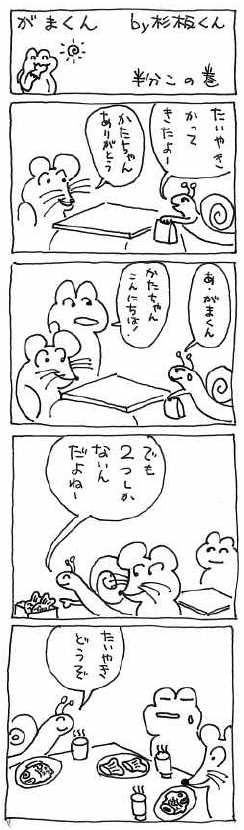 がまくん by杉板くん
半分この巻
たいやき
かって
きたよー
かたちゃん
ありがとう
あ・がまくん
かたちゃん
こんにちは!
でも
2つしか
ないん
だよねー
たいやき
どうぞ